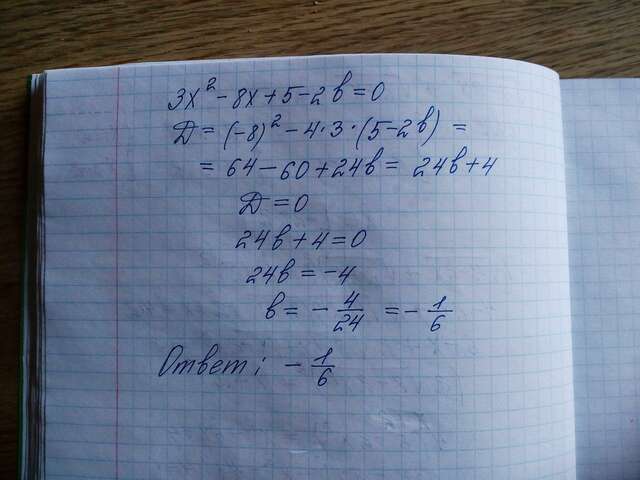 3x² - 8x + 5 - 2b = 0
D = (-8)² - 4·3·(5-2b) =
= 64 - 60 + 24b = 24b + 4
D = 0
24b + 4 = 0
24b = -4
b = - 4/24 = - 1/6
Ответ: - 1/6